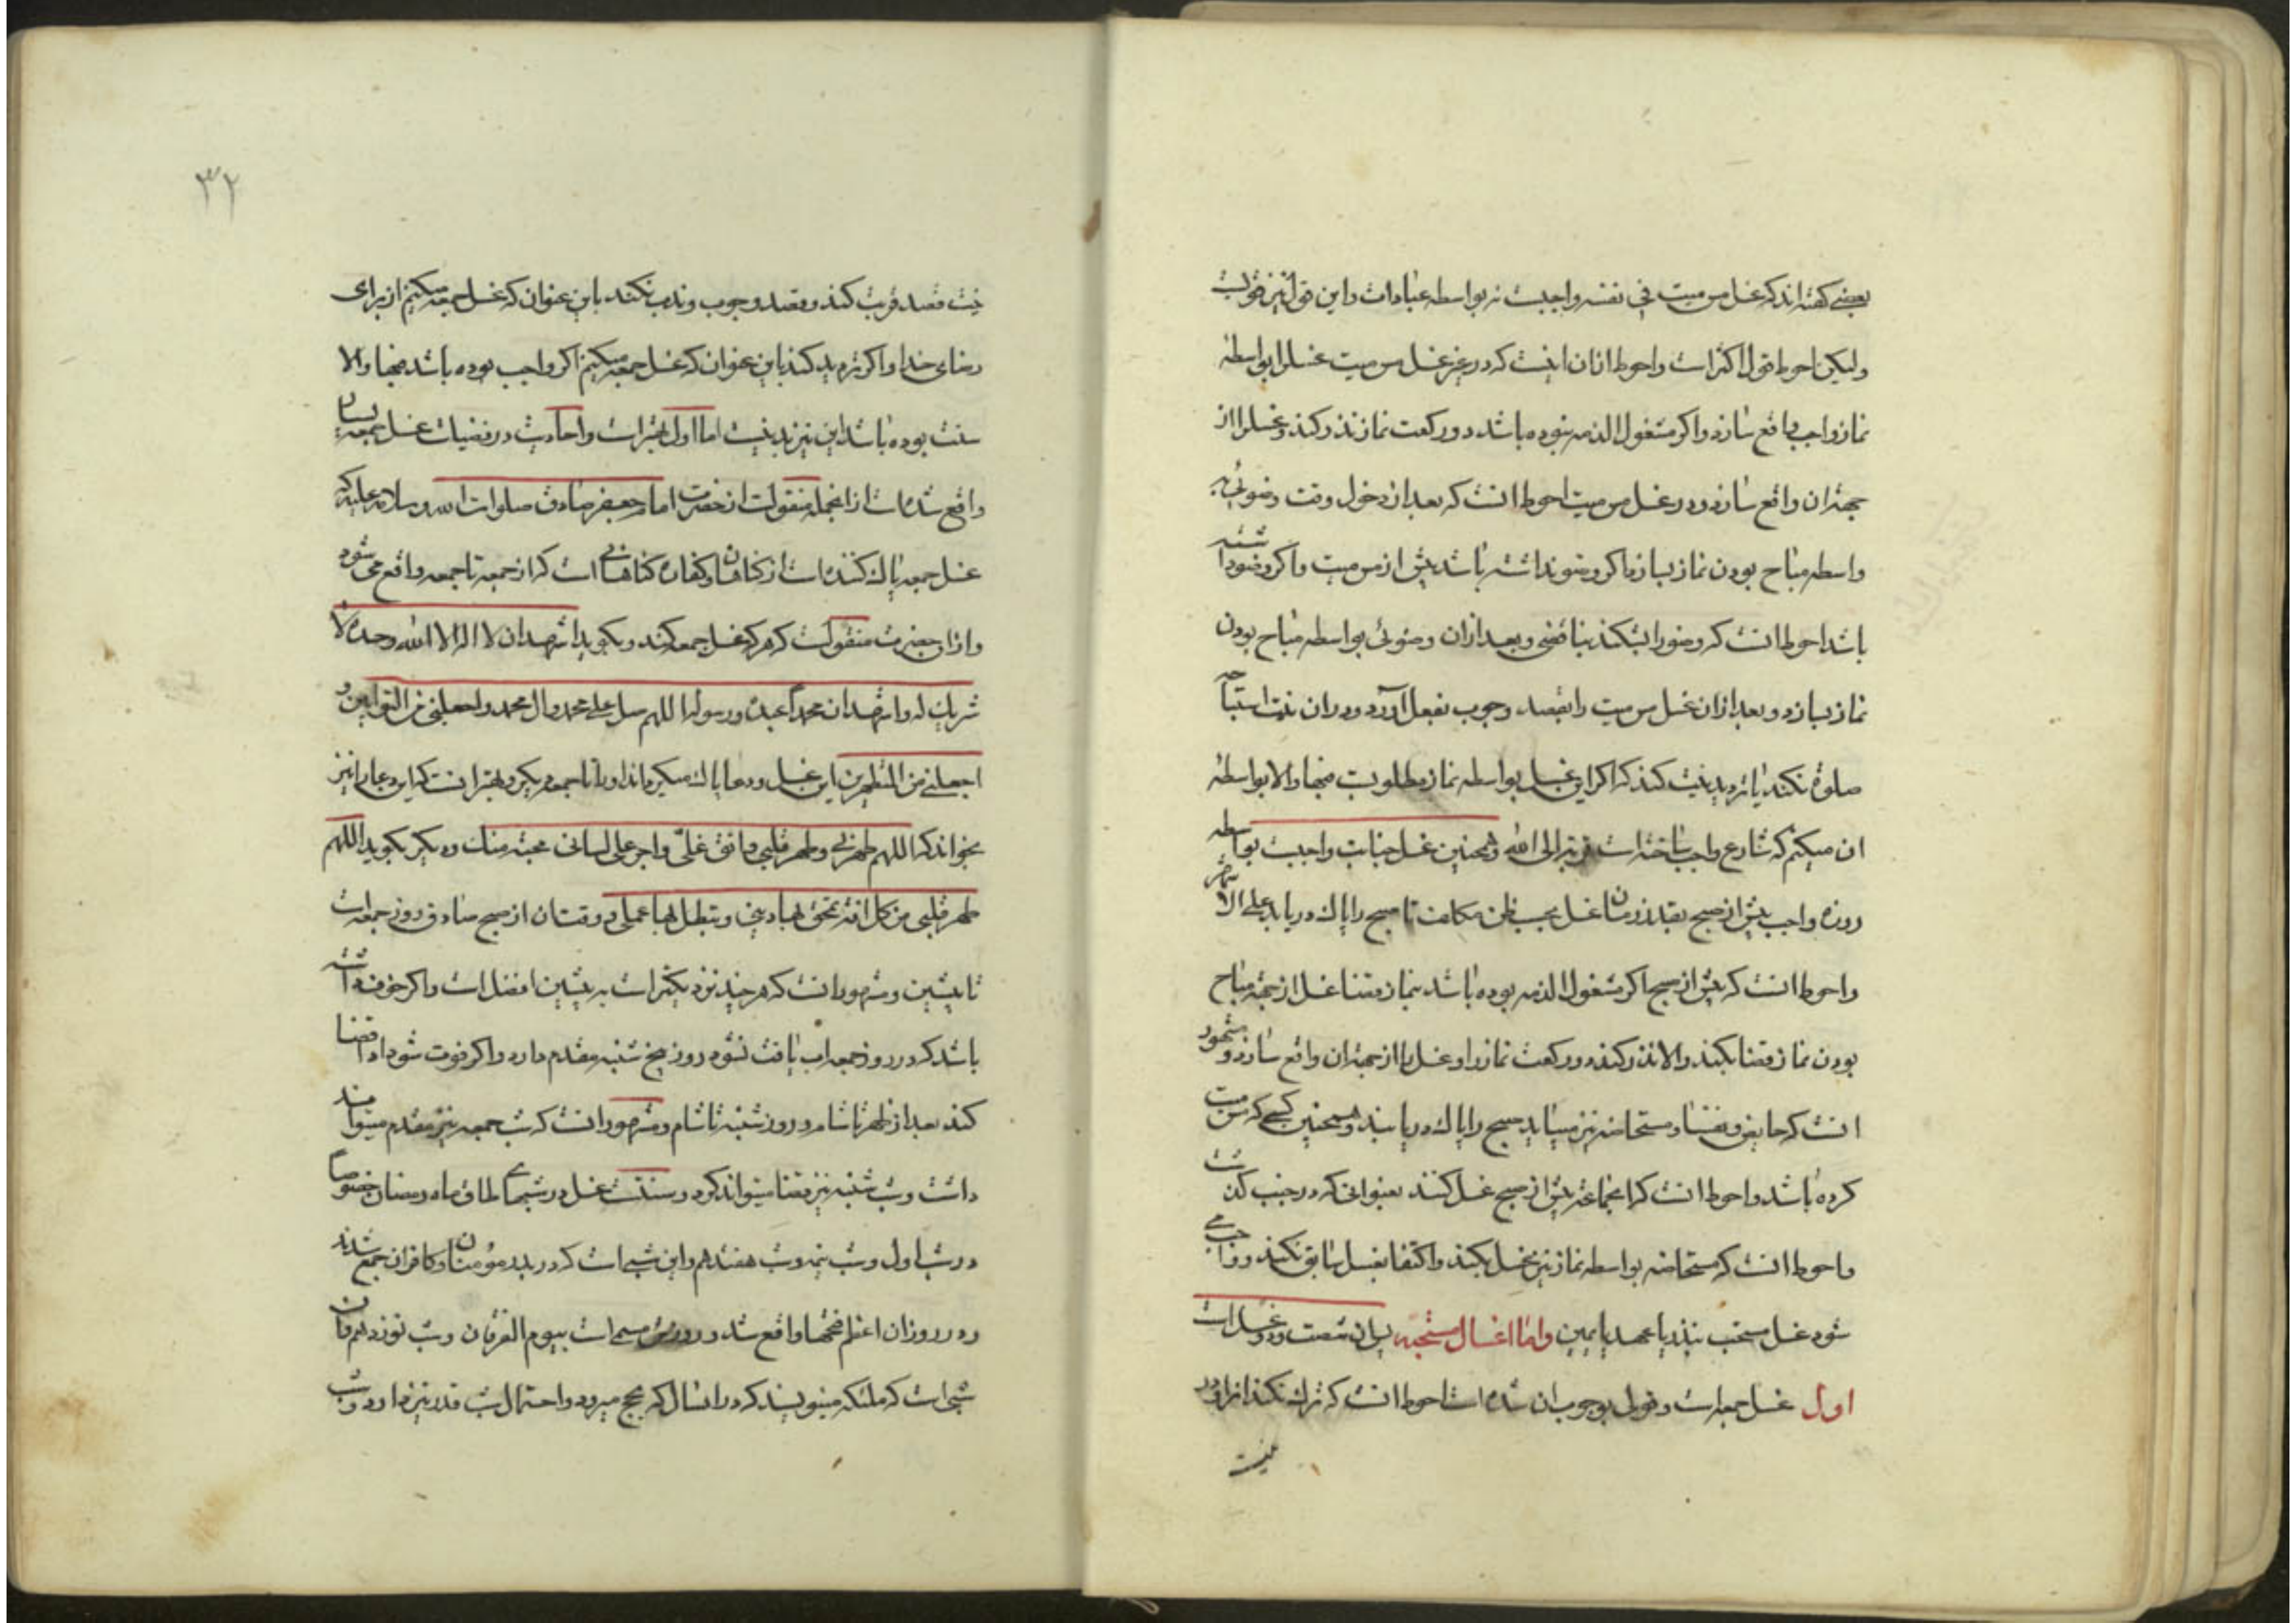 بعضی گفته اند که غسل مس میت فی نفسه واجبست نه بواسطه عبادات و این قول نیز قویست
ولیکن احوط قول اکثر است و احوط از ان اینست که در غیر غسل مس میت غسل را بواسطه
نماز واجب واقع سازد و اکر مشغول الذمه نبوده باشد دو رکعت نماز نذر کند و غسل را از
جهة ان واقع سازد و در غسل مس میت احوط انست که بعد از دخول وقت وضوئی به
واسطه مباح بودن نماز بسازد اکر وضو نداشته باشد پیش از مس میت و اکر وضو داشته
باشد احوط انست که وضو را بشکند بناقضی و بعد از ان وضوئی بواسطه مباح بودن
نماز بسازد و بعد از ان غسل مس میت را بقصد وجوب بفعل آورد و در ان نیت استباحه
صلوة نکند یا تردید نیت کند که اکر این غسل بواسطه نماز مطلوبست فبها والا بواسطه
ان میکنم که شارع واجب ساخته است قربة الی الله و همچنین غسل جنابت واجبست بواسطه
روزه واجب پیش از صبح بقدر زمان غسل بحسب ظن مکلف تا صبح را پاک دریابد علی الاشهر
واحوط انست که پیش از صبح اکر مشغول الذمه بوده باشد بنماز قضا غسل از جهة مباح
بودن نماز قضا بکند والا نذر کند دو رکعت نماز را و غسل را از جهة ان واقع سازد و مشهور
انست که حایض و نفسا و مستحاضه نیز میباید صبح را پاک دریابند و همچنین کسی که مس میت
کرده باشد و احوط انست که اینجماعة پیش از صبح غسل کنند بعنوانی که در جنب کذشت
و احوط انست که مستحاضه بواسطه نماز نیز غسل بکند و اکتفا بغسل سابق نکند و واجب می
شود غسل مستحب بنذر یا عهد یا یمین واما اغسال مستحبه پس ان شصت و دو غسل است
اول غسل جمعه است و قول بوجوب ان شده است احوط انست که ترک نکند انرا و در
نیت
۳۲
نیت قصد قربت کند و قصد وجوب و ندب نکند باین عنوان که غسل جمعه میکنم از برای
رضای خدا و اکر تردید کند باین عنوان که غسل جمعه میکنم اکر واجب بوده باشد فبها والا
سنت بوده باشد این نیز بد نیست اما اول بهتر است و احادیث در فضیلت غسل جمعه بسیار
واقع شده است از انجمله منقولست از حضرت امام جعفر صادق صلوات الله وسلامه علیه که
غسل جمعه پاک کننده است از کناهان و کفاره کناهانی است که از جمعه تا جمعه واقع می شود
و از ان حضرت منقولست که هر که غسل جمعه کند و بکوید اشهد ان لا اله الا الله وحده لا
شریک له واشهد ان محمداً عبده ورسوله اللهم صل علی محمد وال محمد واجعلنی من التوابین و
اجعلنی من المتطهرین این غسل و دعا پاک میکرداند او را تا جمعه دیکر و بهتر انست که این دعا را نیز
بخواند که اللهم طهرنی وطهر قلبی وانق غلّی واجر علی لسانی محبة منک و دیکر بکوید اللهم
طهر قلبی من کل افة تمحق بها دینی وتبطل بها عملی و وقت ان از صبح صادق روز جمعه است
تا پیشین و مشهور انست که هر چند نزدیکتر است به پیشین افضل است و اکر خوف داشته
باشد که در روز جمعه اب یافت نشود روز پنج شنبه مقدم دارد و اکر فوت شود ادا قضا
کند بعد از ظهر تا شام و روز شنبه تا شام و مشهور انست که شب جمعه نیز مقدم میتواند
داشت و شب شنبه نیز قضا میتواند کرد و سنتست غسل در شبهای طاق ماه رمضان خصوصاً
در شب اول و شب نیمه و شب هفدهم و این شبی است که در بدر مؤمنان و کافران جمع شدند
و در روز ان اعظم فتحها واقع شد و روزش مسمی است بیوم الفرقان و شب نوزدهم و ان
شبی است که ملئکه مینویسند که در انسال که بحج میرود و احتمال شب قدر نیز دارد و شب